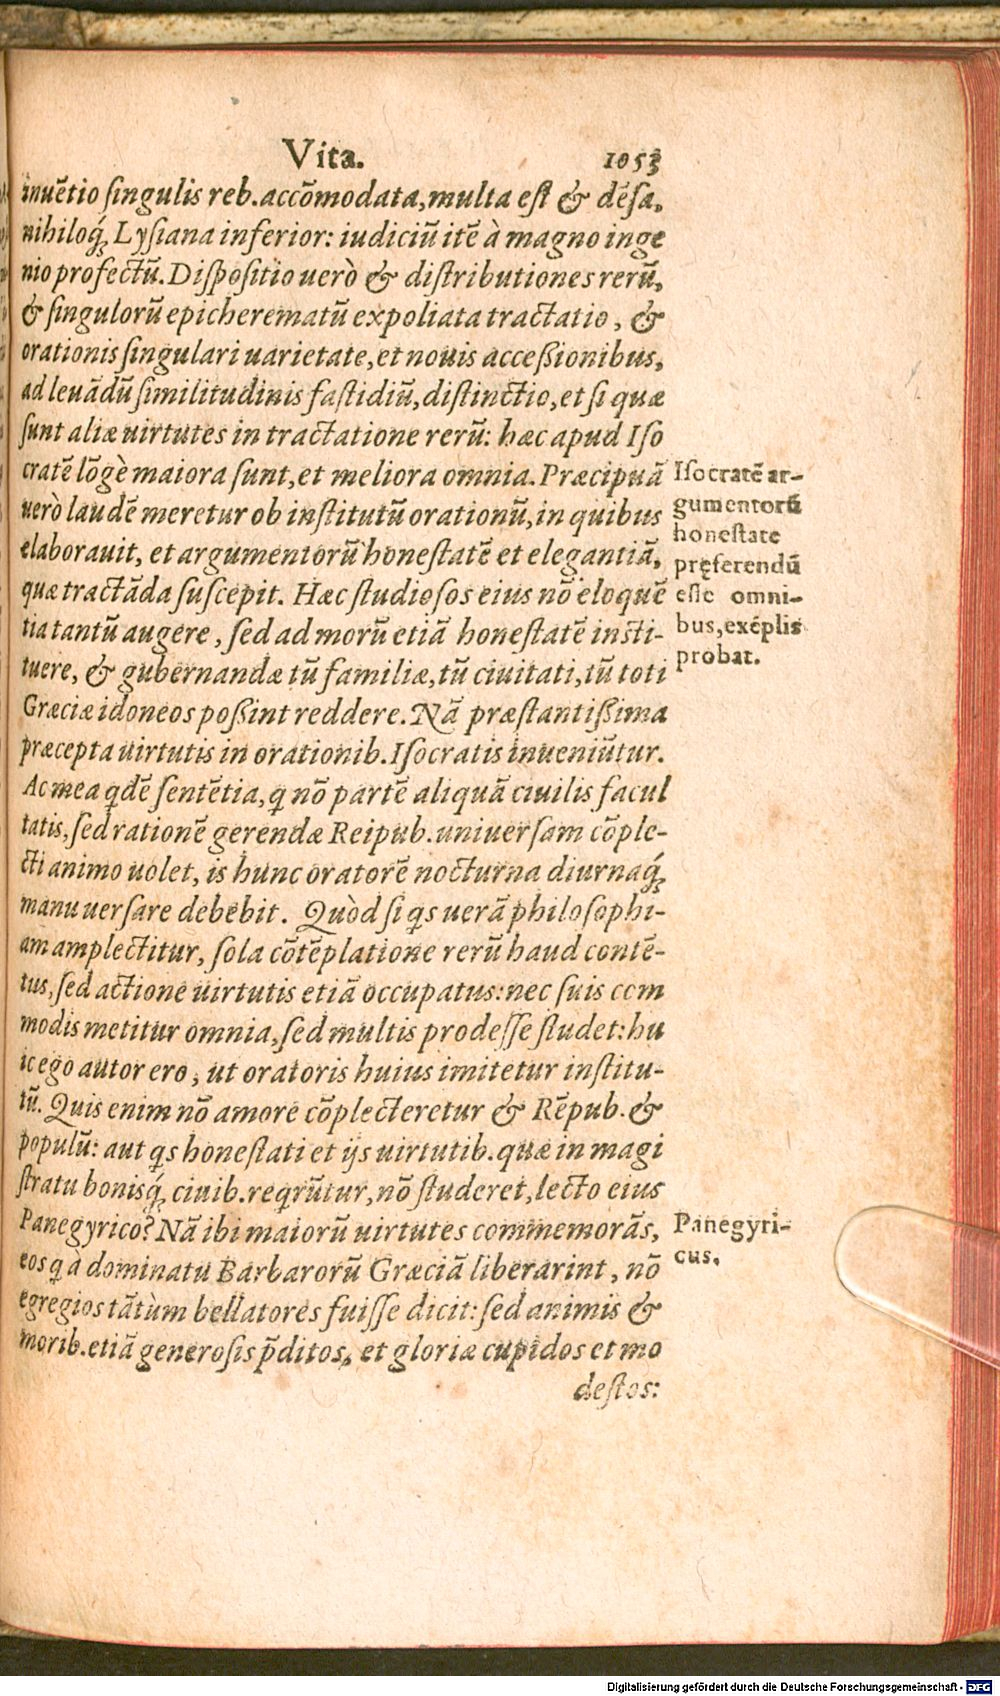 Vita. 1053
inuētio singulis reb. accōmodata, multa est & dēsa,
nihiloq́; Lysiana inferior: iudiciū itē à magno inge
nio profectū. Dispositio uerò & distributiones rerū,
& singulorū epicherematū expoliata tractatio, &
orationis singulari uarietate, et nouis accessionibus,
ad leuādū similitudinis fastidiū, distinctio, et si quæ
sunt aliæ uirtutes in tractatione rerū: hæc apud Iso
cratē lōgè maiora sunt, et meliora omnia. Præcipuā
uerò laudē meretur ob institutū orationū, in quibus
elaborauit, et argumentorū honestatē et elegantiā,
quæ tractāda suscepit. Hæc studiosos eius nō eloquē
tia tantū augere, sed ad morū etiā honestatē insti-
tuere, & gubernandæ tū familiæ, tū ciuitati, tū toti
Græciæ idoneos possint reddere. Nā præstantissima
præcepta uirtutis in orationib. Isocratis inueniūtur.
Ac mea qdē sentētia, q nō partē aliquā ciuilis facul
tatis, sed rationē gerendæ Reipub. uniuersam cōple-
cti animo uolet, is hunc oratorē nocturna diurnaq́;
manu uersare debebit. Quòd si qs uerā philosophi-
am amplectitur, sola cōtēplatione rerū haud contē-
tus, sed actione uirtutis etiā occupatus: nec suis com
modis metitur omnia, sed multis prodesse studet: hu
ic ego autor ero, ut oratoris huius imitetur institu-
tū. Quis enim nō amore cōplecteretur & Rēpub. &
populū: aut qs honestati et ijs uirtutib. quæ in magi
stratu bonisq́; ciuib. reqrūtur, nō studeret, lecto eius
Panegyrico? Nā ibi maiorū uirtutes commemorās,
eos q à dominatu Barbarorū Græciā liberarint, nō
egregios tātùm bellatores fuisse dicit: sed animis &
morib. etiā generosis p̄ditos, et gloriæ cupidos et mo
destos:
Isocratē ar-
gumentorū
honestate
pręferendū
esse omni-
bus, exéplis
probat.
Panegyri-
cus.
Digitalisierung gefördert durch die Deutsche Forschungsgemeinschaft - DFG